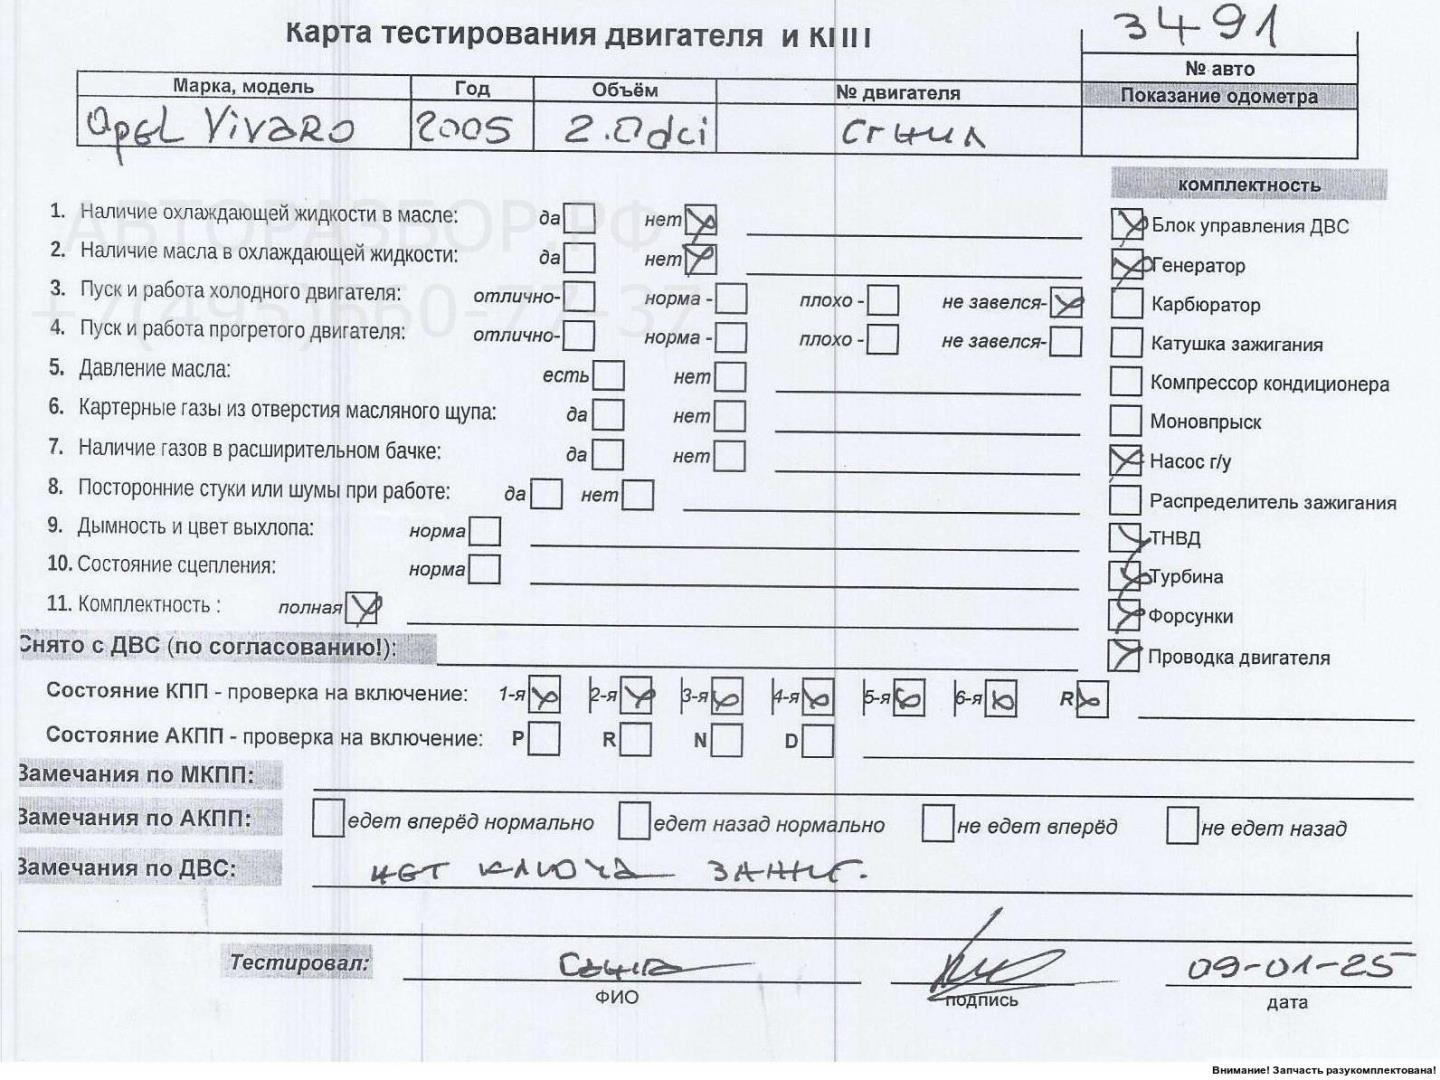 Карта тестирования двигателя и КПП
3491
№ авто
Марка, модель Год Объём № двигателя Показание одометра
Opel Vivaro 2005 2.0dci сгнил
комплектность
1. Наличие охлаждающей жидкости в масле: да нет
Блок управления ДВС
АВТОРАЗБОР.РФ
2. Наличие масла в охлаждающей жидкости: да нет
Генератор
3. Пуск и работа холодного двигателя: отлично- норма - плохо - не завелся-
Карбюратор
+7(495)660-77-37
4. Пуск и работа прогретого двигателя: отлично- норма - плохо - не завелся-
Катушка зажигания
5. Давление масла: есть нет
Компрессор кондиционера
6. Картерные газы из отверстия масляного щупа: да нет
Моновпрыск
7. Наличие газов в расширительном бачке: да нет
Насос г/у
8. Посторонние стуки или шумы при работе: да нет
Распределитель зажигания
9. Дымность и цвет выхлопа: норма
ТНВД
10. Состояние сцепления: норма
Турбина
11. Комплектность : полная
Форсунки
Снято с ДВС (по согласованию!):
Проводка двигателя
Состояние КПП - проверка на включение: 1-я 2-я 3-я 4-я 5-я 6-я R
Состояние АКПП - проверка на включение: P R N D
Замечания по МКПП:
Замечания по АКПП: едет вперёд нормально едет назад нормально не едет вперёд не едет назад
Замечания по ДВС: нет ключа зажиг.
Тестировал: 09-01-25
ФИО подпись дата
Внимание! Запчасть разукомплектована!